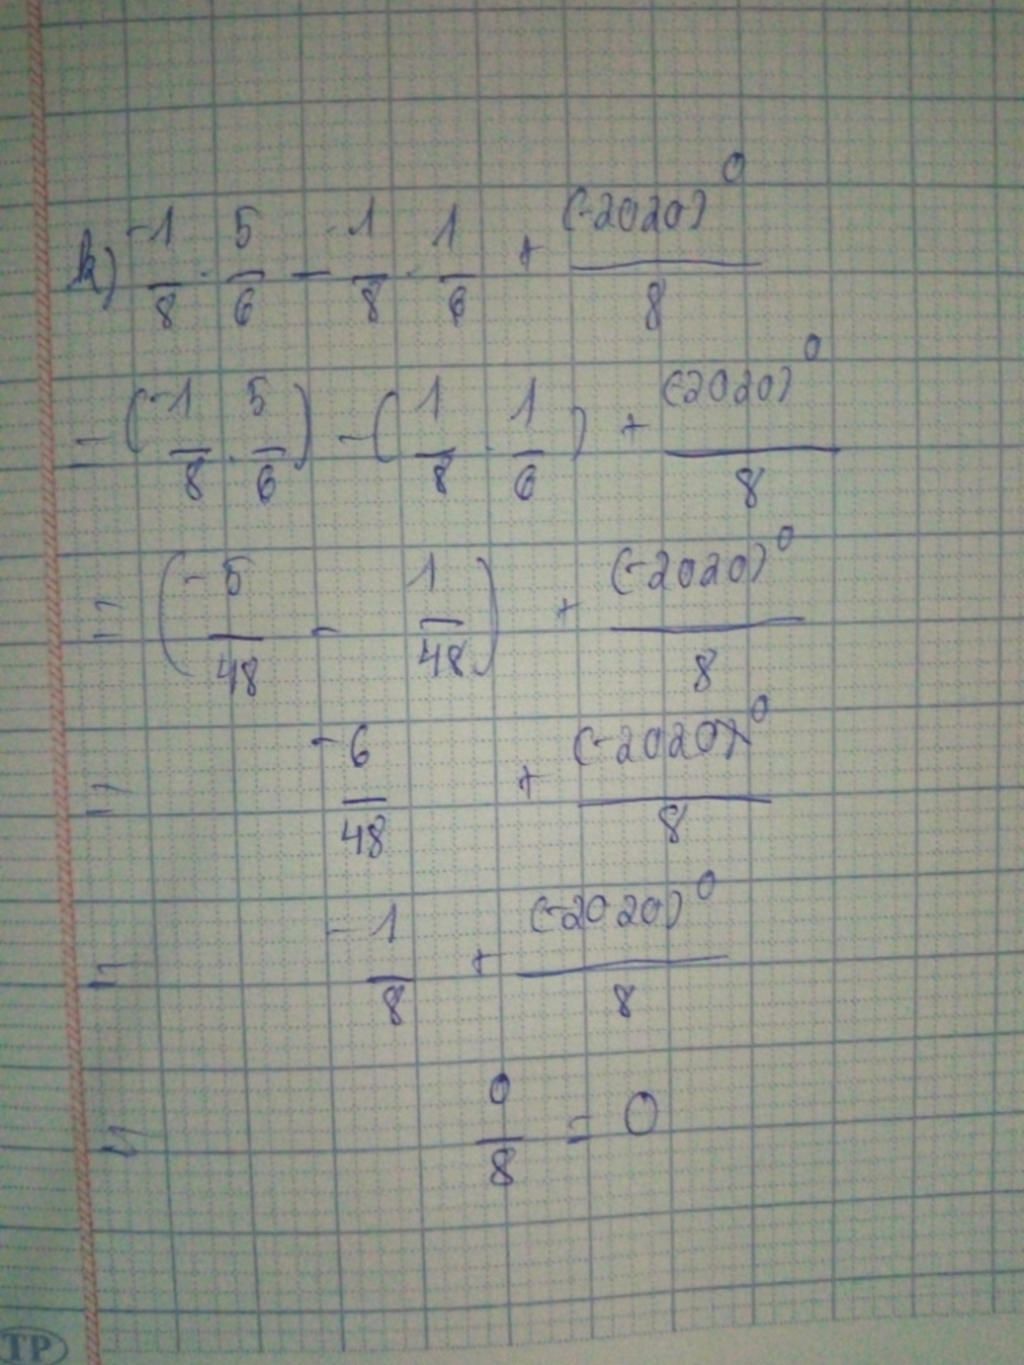 k) -1/8 · 5/6 - 1/8 · 1/6 + (-2020)^0/8
= (-1/8 · 5/6) - (1/8 · 1/6) + (-2020)^0/8
= (-5/48 - 1/48) + (-2020)^0/8
= -6/48 + (-2020)^0/8
= -1/8 + (-2020)^0/8
= 0/8 = 0
TP